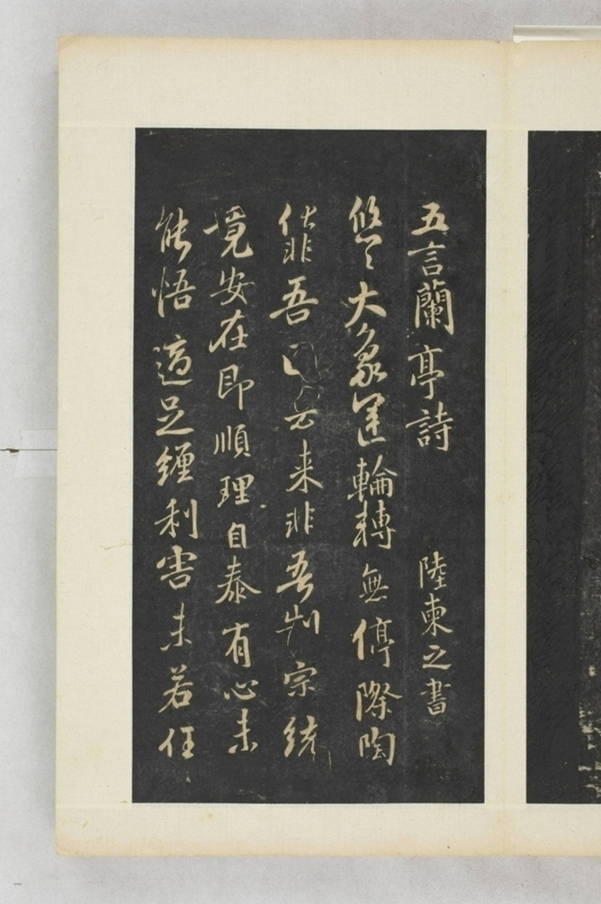 五言蘭亭詩 陸柬之書
悠〻大象運輪轉無停際陶
化非吾因去来非吾制宗統
竟安在即順理自泰有心未
能悟適足纏利害未若任